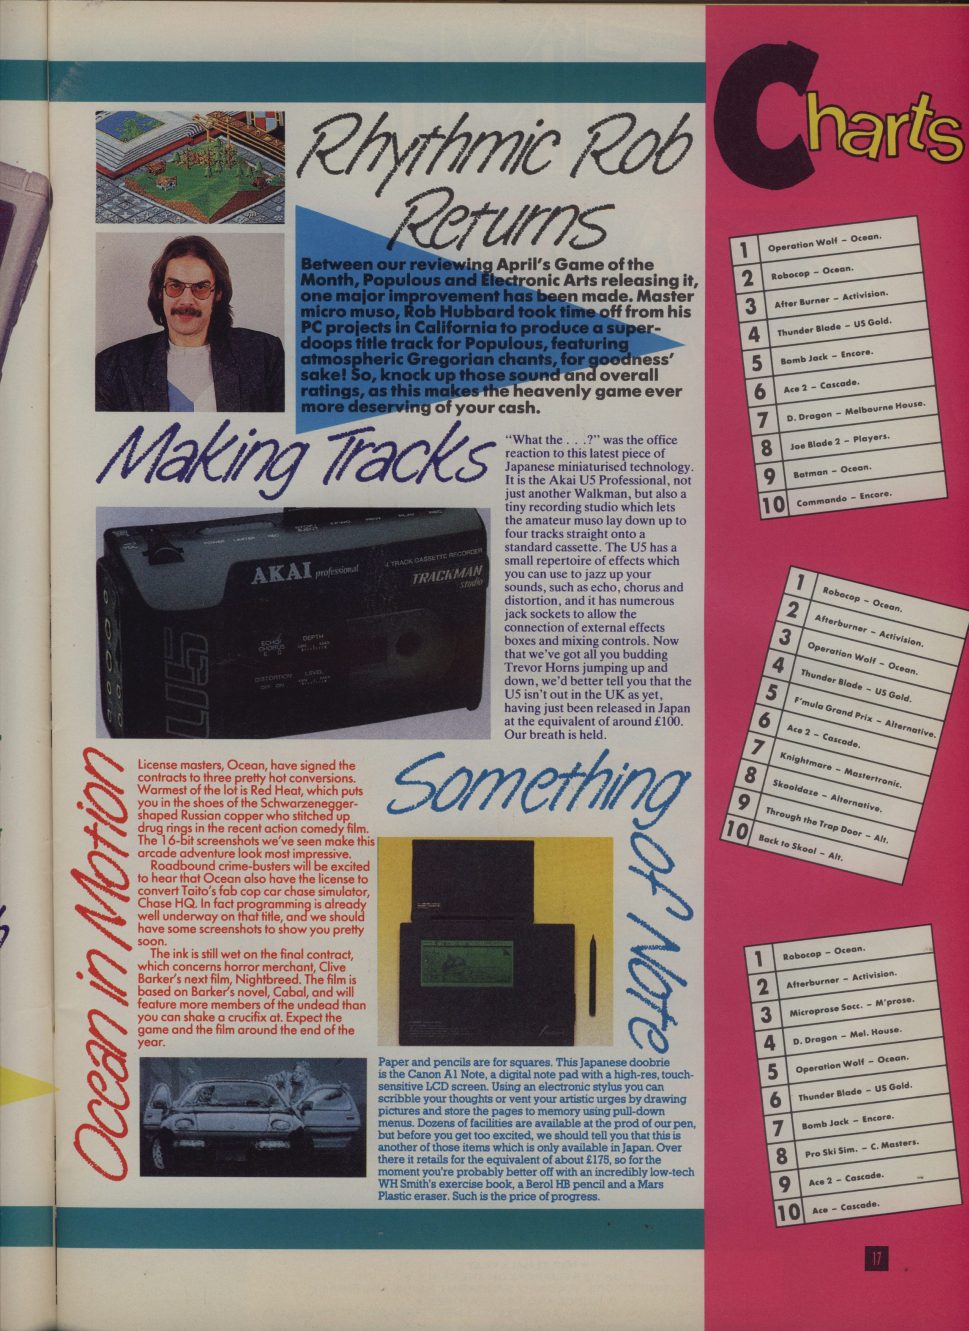 Rhythmic Rob
Returns
Between our reviewing April's Game of the
Month, Populous and Electronic Arts releasing it,
one major improvement has been made. Master
micro muso, Rob Hubbard took time off from his
PC projects in California to produce a super-
doops title track for Populous, featuring
atmospheric Gregorian chants, for goodness'
sake! So, knock up those sound and overall
ratings, as this makes the heavenly game ever
more deserving of your cash.
Making Tracks
"What the . . .?" was the office
reaction to this latest piece of
Japanese miniaturised technology.
It is the Akai U5 Professional, not
just another Walkman, but also a
tiny recording studio which lets
the amateur muso lay down up to
four tracks straight onto a
standard cassette. The U5 has a
small repertoire of effects which
you can use to jazz up your
sounds, such as echo, chorus and
distortion, and it has numerous
jack sockets to allow the
connection of external effects
boxes and mixing controls. Now
that we've got all you budding
Trevor Horns jumping up and
down, we'd better tell you that the
U5 isn't out in the UK as yet,
having just been released in Japan
at the equivalent of around £100.
Our breath is held.
POWER LIMITER REC
AKAI professional
4 TRACK CASSETTE RECORDER
TRACKMAN
studio
U5
ECHO DEPTH
CHORUS
DISTORTION LEVEL
OFF ON
Ocean in Motion
License masters, Ocean, have signed the
contracts to three pretty hot conversions.
Warmest of the lot is Red Heat, which puts
you in the shoes of the Schwarzenegger-
shaped Russian copper who stitched up
drug rings in the recent action comedy film.
The 16-bit screenshots we've seen make this
arcade adventure look most impressive.
Roadbound crime-busters will be excited
to hear that Ocean also have the license to
convert Taito's fab cop car chase simulator,
Chase HQ. In fact programming is already
well underway on that title, and we should
have some screenshots to show you pretty
soon.
The ink is still wet on the final contract,
which concerns horror merchant, Clive
Barker's next film, Nightbreed. The film is
based on Barker's novel, Cabal, and will
feature more members of the undead than
you can shake a crucifix at. Expect the
game and the film around the end of the
year.
Something
of Note
Paper and pencils are for squares. This Japanese doobrie
is the Canon A1 Note, a digital note pad with a high-res, touch-
sensitive LCD screen. Using an electronic stylus you can
scribble your thoughts or vent your artistic urges by drawing
pictures and store the pages to memory using pull-down
menus. Dozens of facilities are available at the prod of our pen,
but before you get too excited, we should tell you that this is
another of those items which is only available in Japan. Over
there it retails for the equivalent of about £175, so for the
moment you're probably better off with an incredibly low-tech
WH Smith's exercise book, a Berol HB pencil and a Mars
Plastic eraser. Such is the price of progress.
Charts
1 Operation Wolf – Ocean.
2 Robocop – Ocean.
3 After Burner – Activision.
4 Thunder Blade – US Gold.
5 Bomb Jack – Encore.
6 Ace 2 – Cascade.
7 D. Dragon – Melbourne House.
8 Joe Blade 2 – Players.
9 Batman – Ocean.
10 Commando – Encore.
1 Robocop – Ocean.
2 Afterburner – Activision.
3 Operation Wolf – Ocean.
4 Thunder Blade – US Gold.
5 F'mula Grand Prix – Alternative.
6 Ace 2 – Cascade.
7 Knightmare – Mastertronic.
8 Skooldaze – Alternative.
9 Through the Trap Door – Alt.
10 Back to Skool – Alt.
1 Robocop – Ocean.
2 Afterburner – Activision.
3 Microprose Socc. – M'prose.
4 D. Dragon – Mel. House.
5 Operation Wolf – Ocean.
6 Thunder Blade – US Gold.
7 Bomb Jack – Encore.
8 Pro Ski Sim. – C. Masters.
9 Ace 2 – Cascade.
10 Ace – Cascade.
17